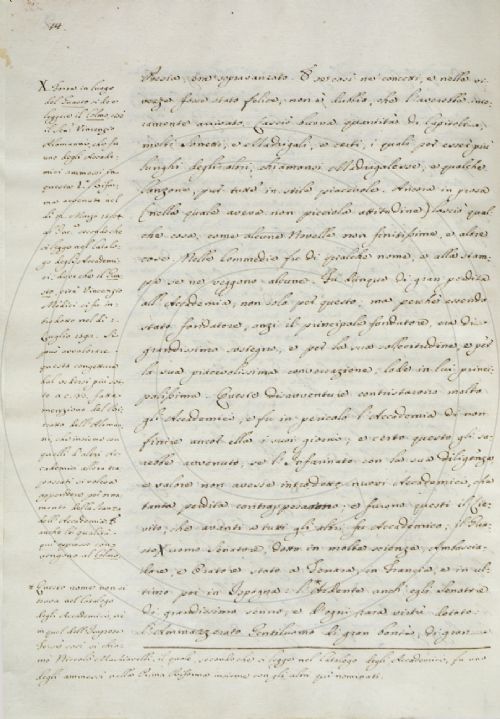 14
Poesia, era sopravanzato. E se così ne concetti, e nella vi-
vezza fosse stato felice, non è dubbio, che l'averebbe inte-
ramente arrivato. Lasciò buona quantità di Capitoli,
molti Sonetti, e Madrigali, e certi, i quali per esser più
lunghi degli altri, chiamansi Madrigalesse, e qualche
Canzone, pur tutte in stile piacevole. Ancora in prosa
(nella quale aveva non piccola attitudine) lasciò qual
che cosa, come alcune Novelle non finitissime, e altre
cose. Nelle Commedie fu di qualche nome, e alla stam-
pa se ne veggono alcune. Fu dunque di gran perdita
all'Accademia, non solo per questo: ma perchè essendo
stato fondatore, anzi il principale fondatore, era di
grandissimo sostegno, e per la sua sollecitudine, e per
la sua piacevolissima conversazione, lode in lui princi-
palissima. Queste disavventure contristarono molto
gli Accademici, e fu in pericolo l'Accademia di non
finire ancor ella i suoi giorni; e certo questo gli sa-
rebbe avvenuto, se l'Infarinato con la sua diligenza
e valore non avesse introdotto nuovi Accademici, che
tanta perdita contrappesarono: e furono questi il
che avanti a tutti gli altri fu Accademico; il
X uomo Senatore, dotto in molte scienze, Ambascia-
dore, e Oratore stato a Ferrara, in Francia, e in ul-
timo poi in Ispagna: l'Ardente anch'egli Senatore
di grandissimo senno, e d'ogni rara virtù dotato:
l'Ammazzerato Gentiluomo di gran bontà, di gran
X Forse in luogo
del si dee
leggere il Colmo, così
il Vincenzio
Alamanni, che fu
uno degli Accade-
mici ammessi in
questa
del dì Marzo
secondo che
si legge nel Catalo-
go degli Accademi-
ci; dove che il
sto, fu Vincenzio
Medici, ci fu in-
trodotto nel dì
Luglio 1591. Si
può avvalorare
questa congettura
dal vedersi più sot-
to a c. 20. far
menzione del Ri-
tratto dell'Alaman-
ni, che insieme con
quelli d'altri Ac-
cademici allora tra
passati si voleva
appendere per orna-
mento della stanza
dell'Accademia. E
anche le qualità
qui espresse con-
vengono al Colmo.
Questo nome non si
trova nel Catalogo
degli Accademici, nè
in quel dell'
Forse così si chia-
mò Niccolò Machiavelli, il quale, secondo che si legge nel Catalogo degli Accademici, fu uno
degli ammessi nella Prima insieme con gli altri qui nominati.